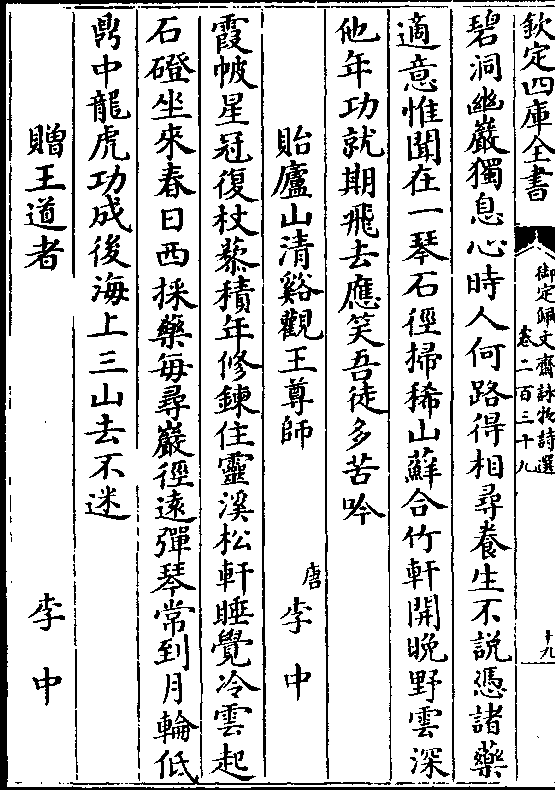 欽定四庫全書
御定佩文齋詠物詩選
卷二百三十九
十九
碧洞幽巖獨息心時人何路得相尋養生不說憑諸藥
適意惟聞在一琴石徑掃稀山蘚合竹軒開晚野雲深
他年功就期飛去應笑吾徒多苦吟
貽廬山清谿觀王尊師
唐李中
霞帔星冠復杖藜積年修鍊住靈溪松軒睡覺冷雲起
石磴坐來春日西採藥每尋巖徑遠彈琴常到月輪低
鼎中龍虎功成後海上三山去不迷
贈王道者
李中